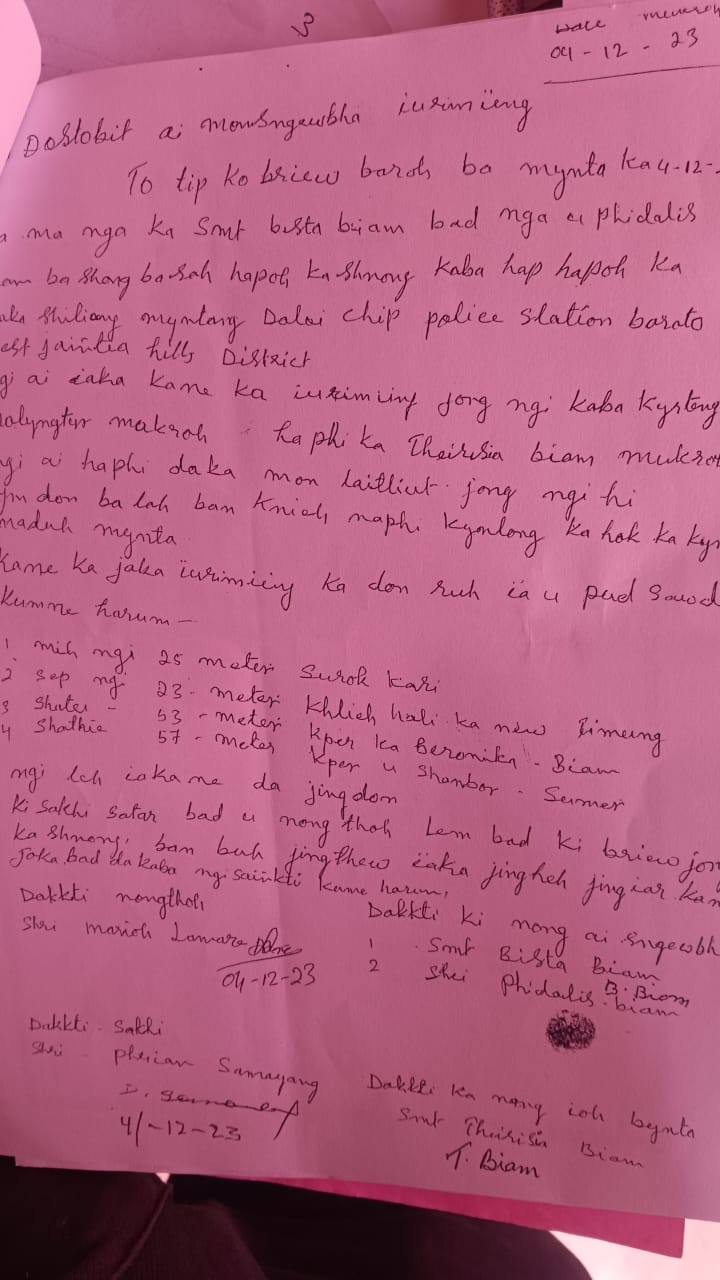 3
Date
04-12-23
Dostobit ai mon sngewbha iurimiëng
To tip ko briew baroh ba mynta ka 4-12-
ma nga ka Smt bista biam bad nga u phidalis
ba shong ba sah hapoh ka shnong kaba hap hapoh ka
Shiliang myntang Daloi chip police station barato
est jaiñtia hills District
ai ïaka kame ka iurimiing jong ngi kaba kynteng
makroh ha phi ka Theirisia biam mukroh
ngi ai haphi daka mon laitluit jong ngi hi
ym don ba lah ban knieh naphi kynlong ka hok ka
naduh mynta
kame ka jaka ïurimiing ka don ruh ïa u pud sawd
kumne harum —
1 mih ngi 25 meter surok kari
2 sep ngi 23 - meter khlieh hali ka new
3 Shatei - 53 - meter kper ka Beronika - Biam
4 Shathie 57 - meter kper u Shanbor - Sumer
ngi leh ïakane da jingdon
ki sakhi satar bad u nongthoh lem bad ki briew jon
ka shnong, ban buh jingthew ïaka jingheh jingïar kan
Jaka bad da kaba ngi saiñkti kume harum,
Dakkti nongthoh
Shri marioh Lamare
04-12-23
Dakkti ki nong ai sngewbh
1 Smt Bista Biam
B. Biam
2 Shri Phidalis biam
Dakkti - Sakhi
Shri - pherian Sumayang
4/-12-23
Dakkti ka nong ioh bynta
Smt Theirisia Biam
T. Biam